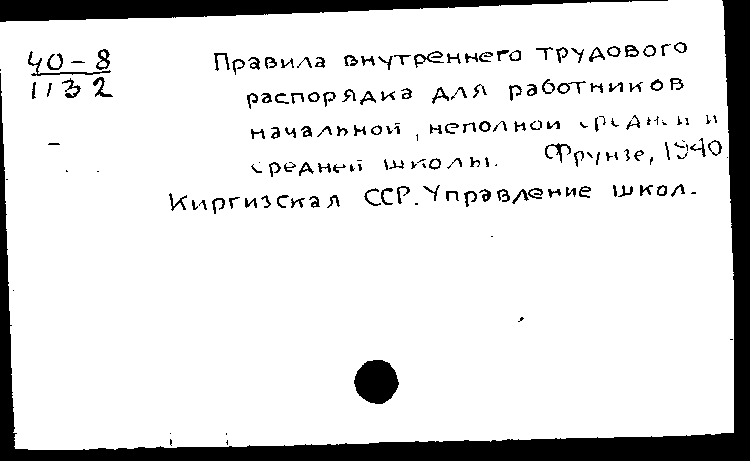 40-8
1132
Правила внутреннего трудового
распорядка для работников
начальной, неполной средней и
средней школы. Фрунзе, 1940
Киргизская ССР. Управление школ.